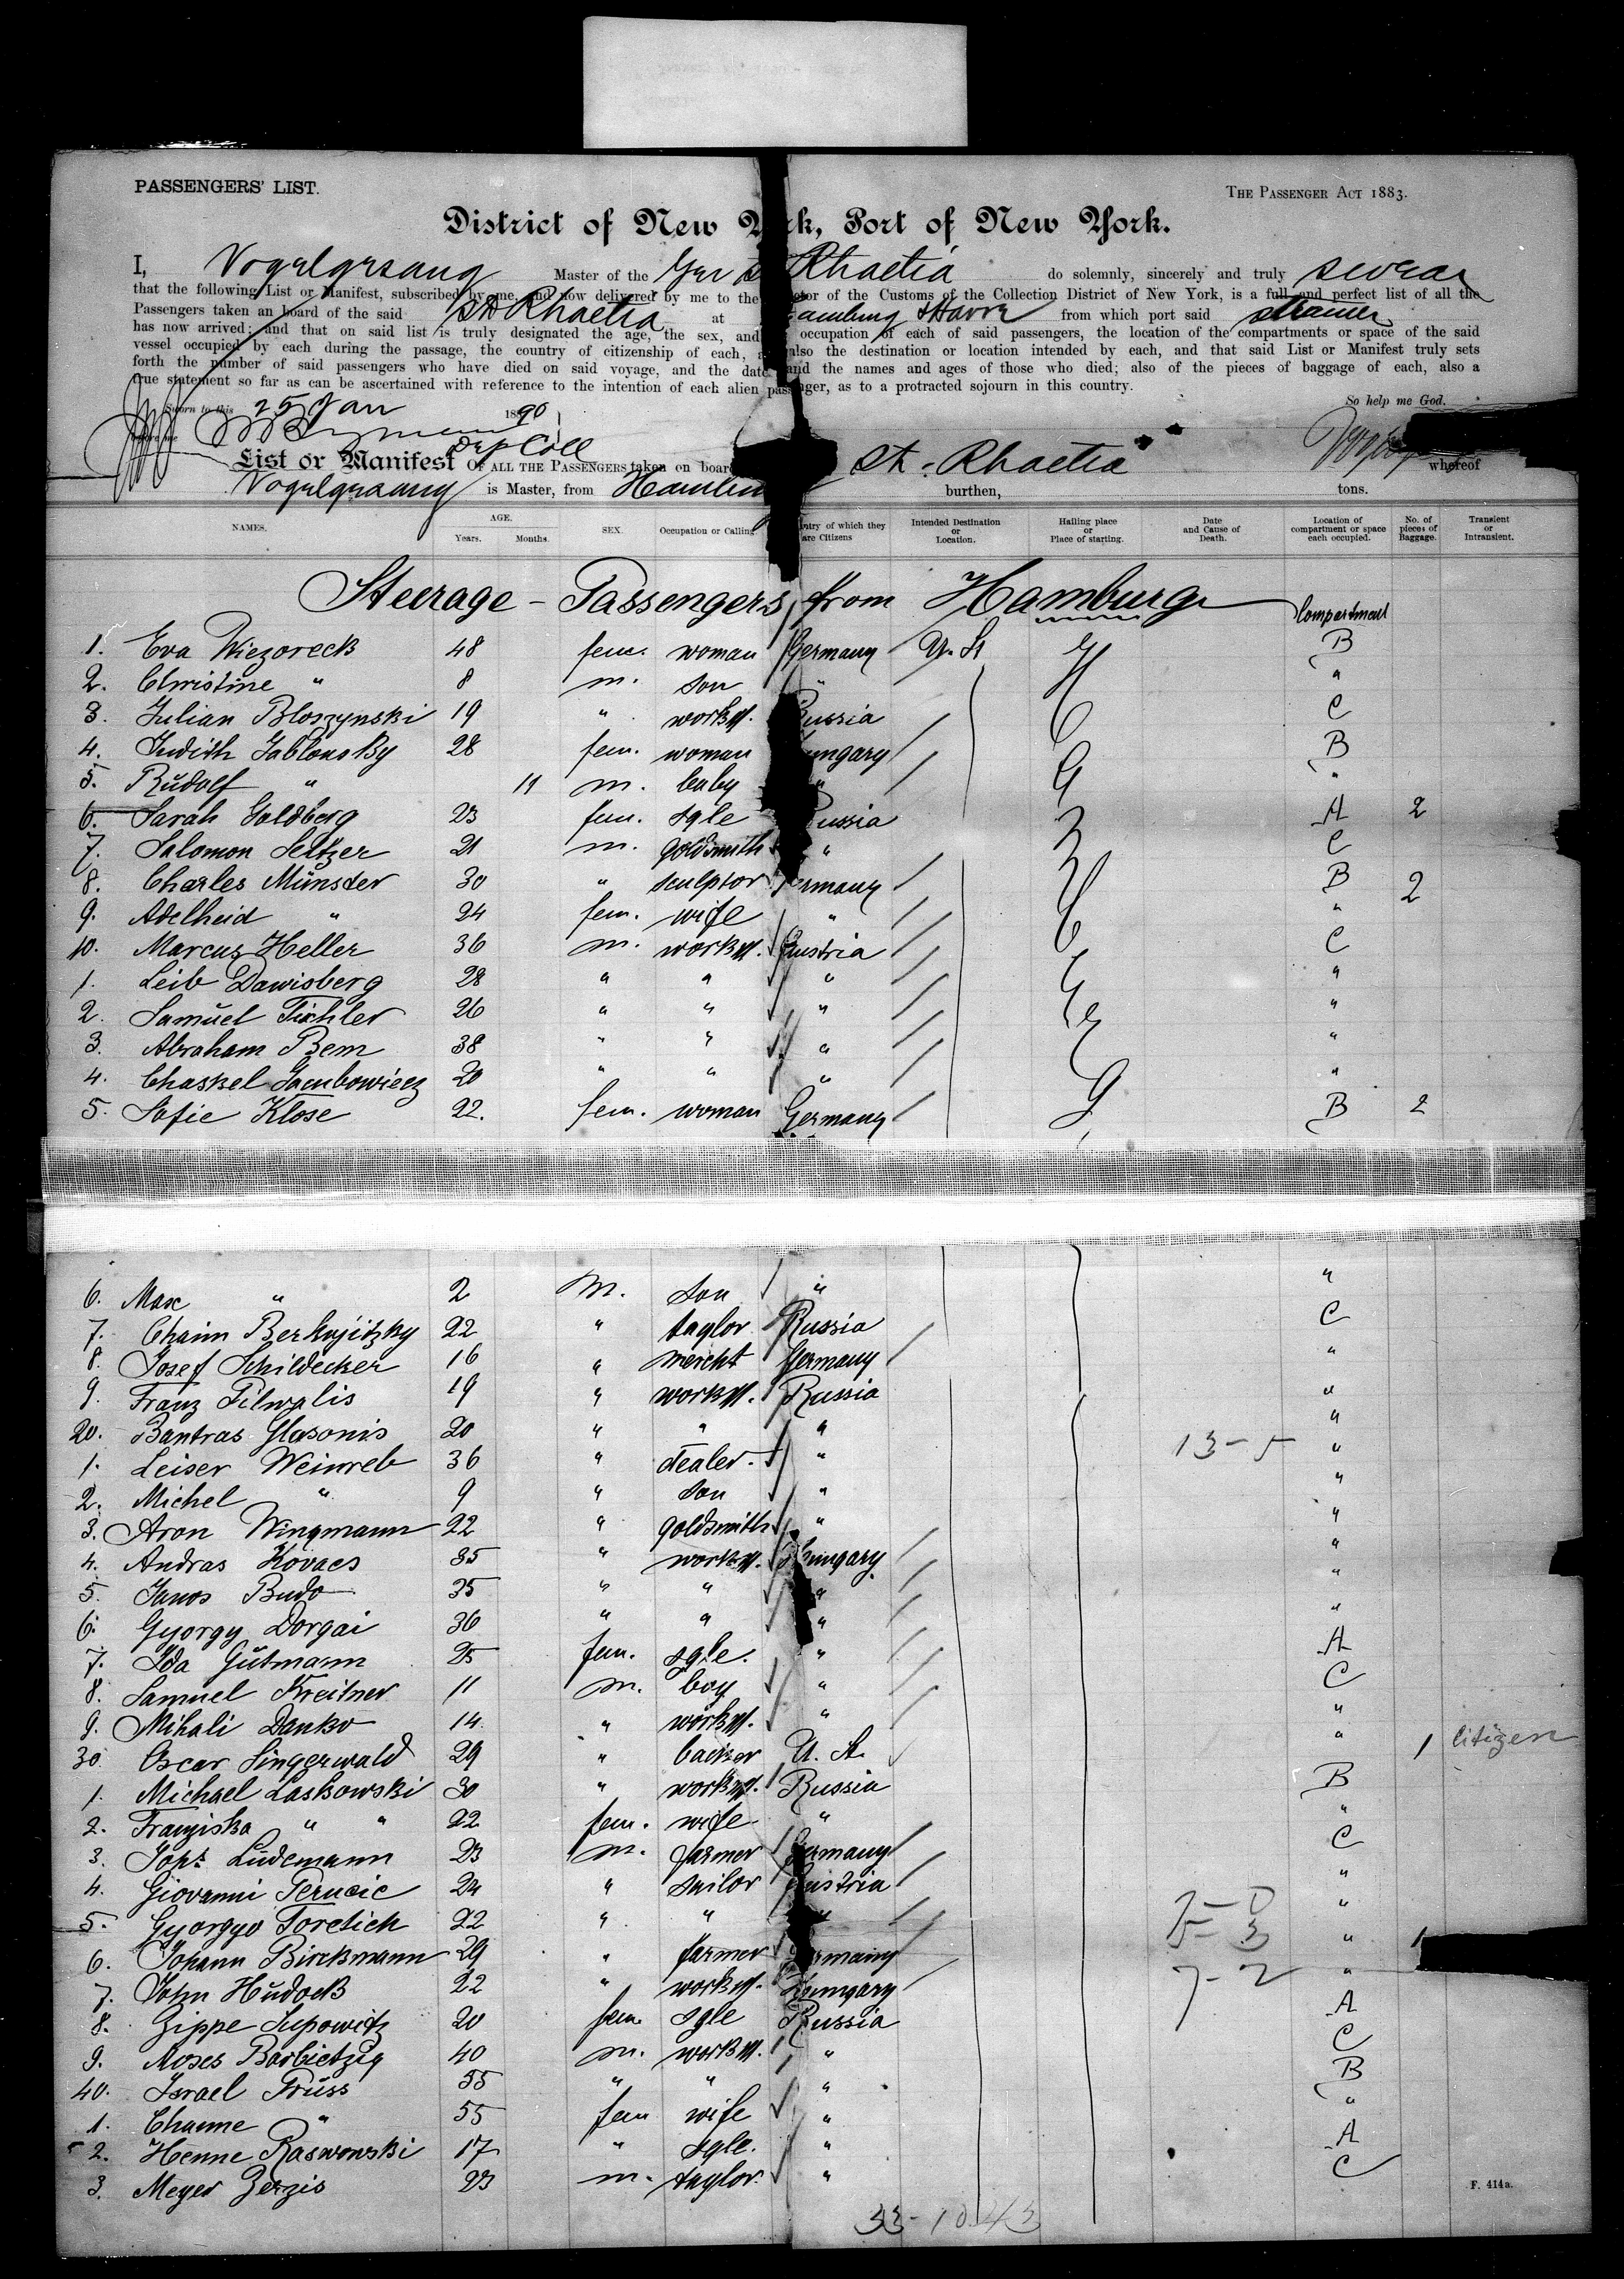 PASSENGERS' LIST.
THE PASSENGER ACT 1883.
District of New York, Port of New York.
I, Vogelgesang Master of the Ger St Rhaetia do solemnly, sincerely and truly swear
that the following List or Manifest, subscribed by me, and now delivered by me to the Collector of the Customs of the Collection District of New York, is a full and perfect list of all the
Passengers taken on board of the said St Rhaetia at Hamburg Havre from which port said steamer
has now arrived; and that on said list is truly designated the age, the sex, and occupation of each of said passengers, the location of the compartments or space of the said
vessel occupied by each during the passage, the country of citizenship of each, also the destination or location intended by each, and that said List or Manifest truly sets
forth the number of said passengers who have died on said voyage, and the date and the names and ages of those who died; also of the pieces of baggage of each, also a
true statement so far as can be ascertained with reference to the intention of each alien passenger, as to a protracted sojourn in this country.
Sworn to this 25 Jan 1890
So help me God.
before me
Dep Coll
List or Manifest OF ALL THE PASSENGERS taken on board St. Rhaetia whereof
Vogelgesang is Master, from Hamburg burthen, tons.
NAMES. AGE. Years. Months. SEX. Occupation or Calling. Country of which they are Citizens Intended Destination or Location. Hailing place or Place of starting. Date and Cause of Death. Location of compartment or space each occupied. No. of pieces of Baggage. Transient or Intransient.
Steerage - Passengers, from Hamburg Compartment
1. Eva Wiezoreck 48 fem. woman Germany U. St B
2. Christine " 8 m. son " "
3. Julian Bloszynski 19 " workm. Russia C
4. Judith Jablonsky 28 fem. woman Hungary B
5. Rudolf " 11 m. baby " "
6. Sarah Goldberg 23 fem. sgle Russia A 2
7. Salomon Seltzer 21 m. goldsmith " C
8. Charles Münster 30 " sculptor Germany B 2
9. Adelheid " 24 fem. wife " "
10. Marcus Heller 36 m. workm. Austria C
1. Leib Dawisberg 28 " " " "
2. Samuel Tichler 26 " " " "
3. Abraham Bem 38 " " " "
4. Chaskel Jacubowicz 20 " " " "
5. Sofie Klose 22. fem. woman Germany B 2
6. Max " 2 m. son " "
7. Chaim Berkujitzky 22 " taylor Russia C
8. Josef Schildecker 16 " mercht Germany "
9. Franz Pilwalis 19 " workm. Russia "
20. Bantras Glasonis 20 " " " "
1. Leiser Weinreb 36 " dealer. " 13-5 "
2. Michel " 9 " son " "
3. Aron Wingmann 22 " goldsmith " "
4. Andras Kovacs 35 " workm. Hungary "
5. Janos Budo 35 " " " "
6. Gyorgy Dorgai 36 " " " "
7. Ida Gutmann 25 fem. sgle. " A
8. Samuel Kreitner 11 m. boy " C
9. Mihali Danko 14. " workm. " "
30. Oscar Singerwald 29 " backer U. St. " 1 Citizen
1. Michael Laskowski 30 " workm. Russia B
2. Franziska " " 22 fem. wife " "
3. Johs. Lüdemann 23 m. farmer Germany C
4. Giovanni Perucic 24 " sailor Austria "
5. Gyorgyo Toretich 22 " " " "
6. Johann Birckmann 29 " farmer Germany " 1
7. John Hudock 22 " workm. Hungary 7-2 "
8. Zippe Lupowitz 20 fem. sgle Russia A
9. Moses Barbietzig 40 m. workm. " C
40. Israel Truss 55 " " " B
1. Channe " 55 fem wife " "
2. Henne Raswowski 17 " sgle. " A
3. Meyer Zerzis 23 m. taylor. " C
F. 414a.